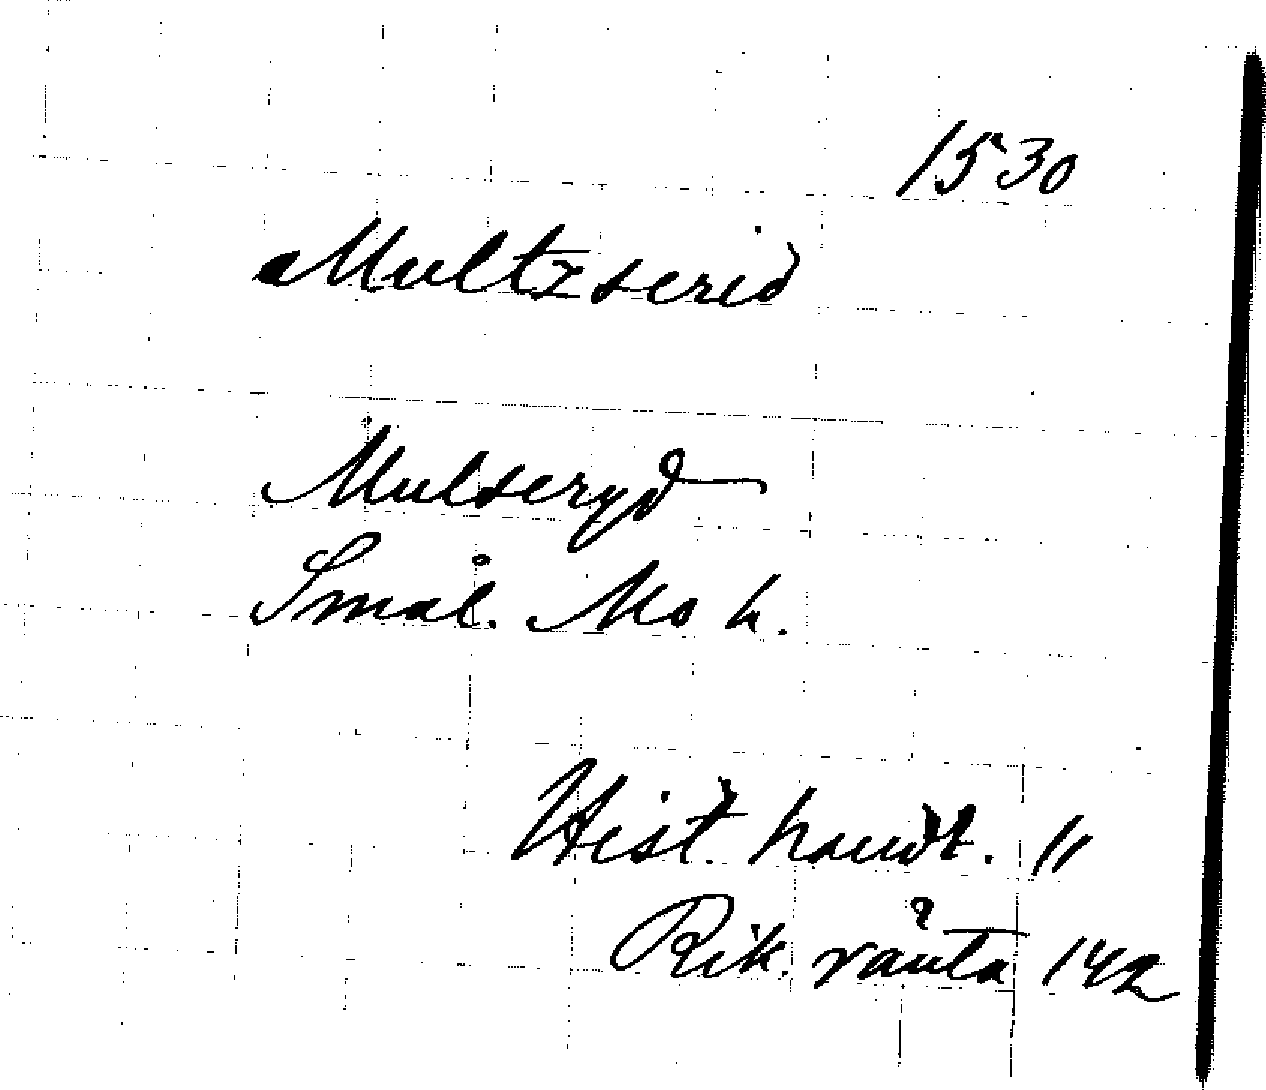 1530
Multzserid
Mulseryd
Smål. Mo h.
Hist. handl. 11
Rik. ränta 142